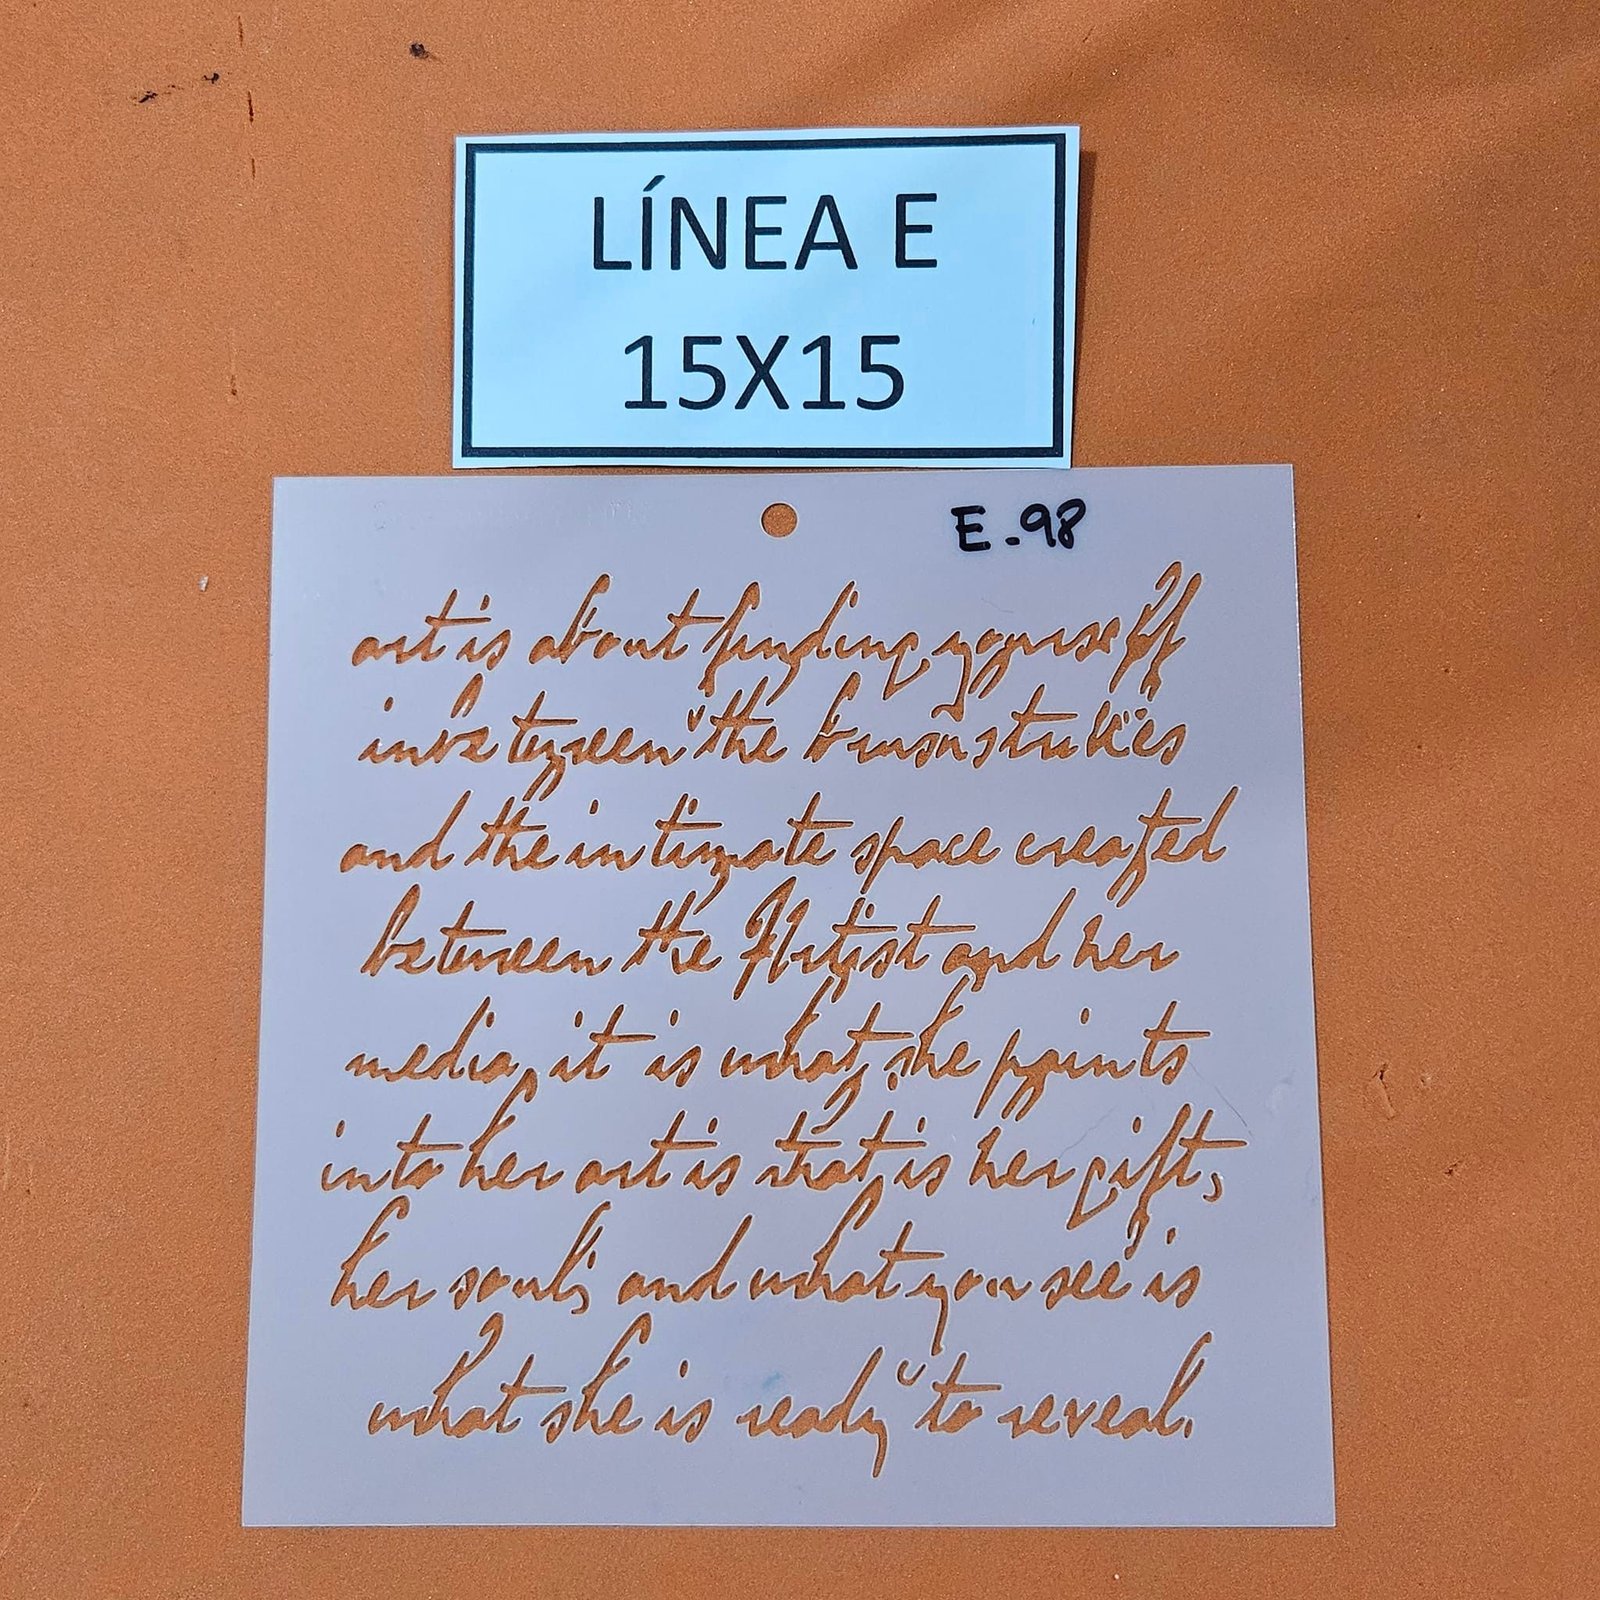 LÍNEA E
15X15
E.98
art is about finding yourself
inbetween the brushstrokes
and the intimate space created
between the Artist and her
media, it is what she paints
into her art is that is her gift,
her soul, and what you see is
what she is ready to reveal.